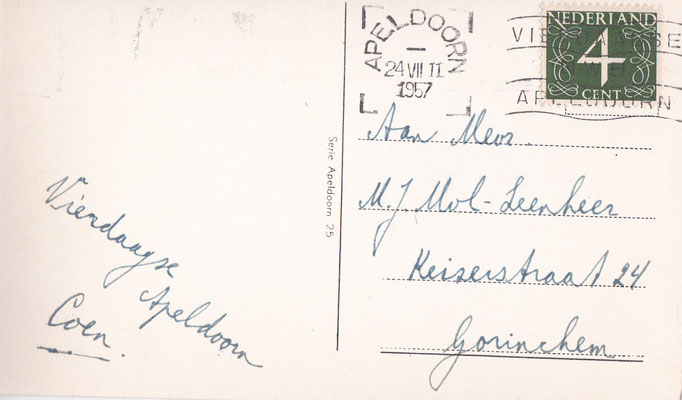 APELDOORN
24 VII 11
1957
NEDERLAND
4
CENT
APELDOORN
Serie Apeldoorn 25
Aan Mevr.
M.J. Mol-Leenheer
Keiserstraat 24
Gorinchem
Vierdaagse
Apeldoorn
Coen.